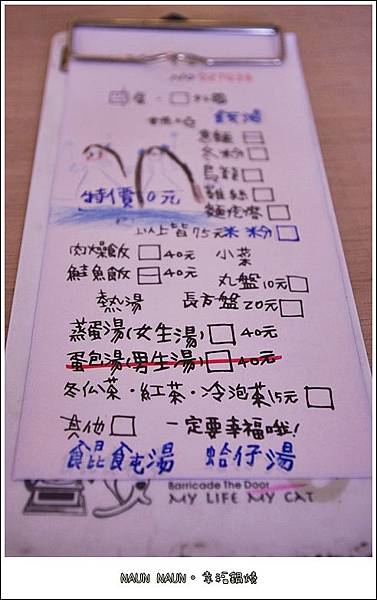 內用 · 外帶
意麵
冬粉
烏龍
雞絲
特價 0元
以上皆75元 米粉
肉燥飯 40元 小菜
鮭魚飯 40元 丸盤10元
熱湯 長方盤20元
蒸蛋湯(女生湯) 40元
蛋包湯(男生湯) 40元
冬瓜茶·紅茶·冷泡茶15元
其他 一定要幸福哦!
餛飩湯 蛤仔湯
Barricade The Door
MY LIFE MY CAT
NAUN NAUN。幸污鍋燒